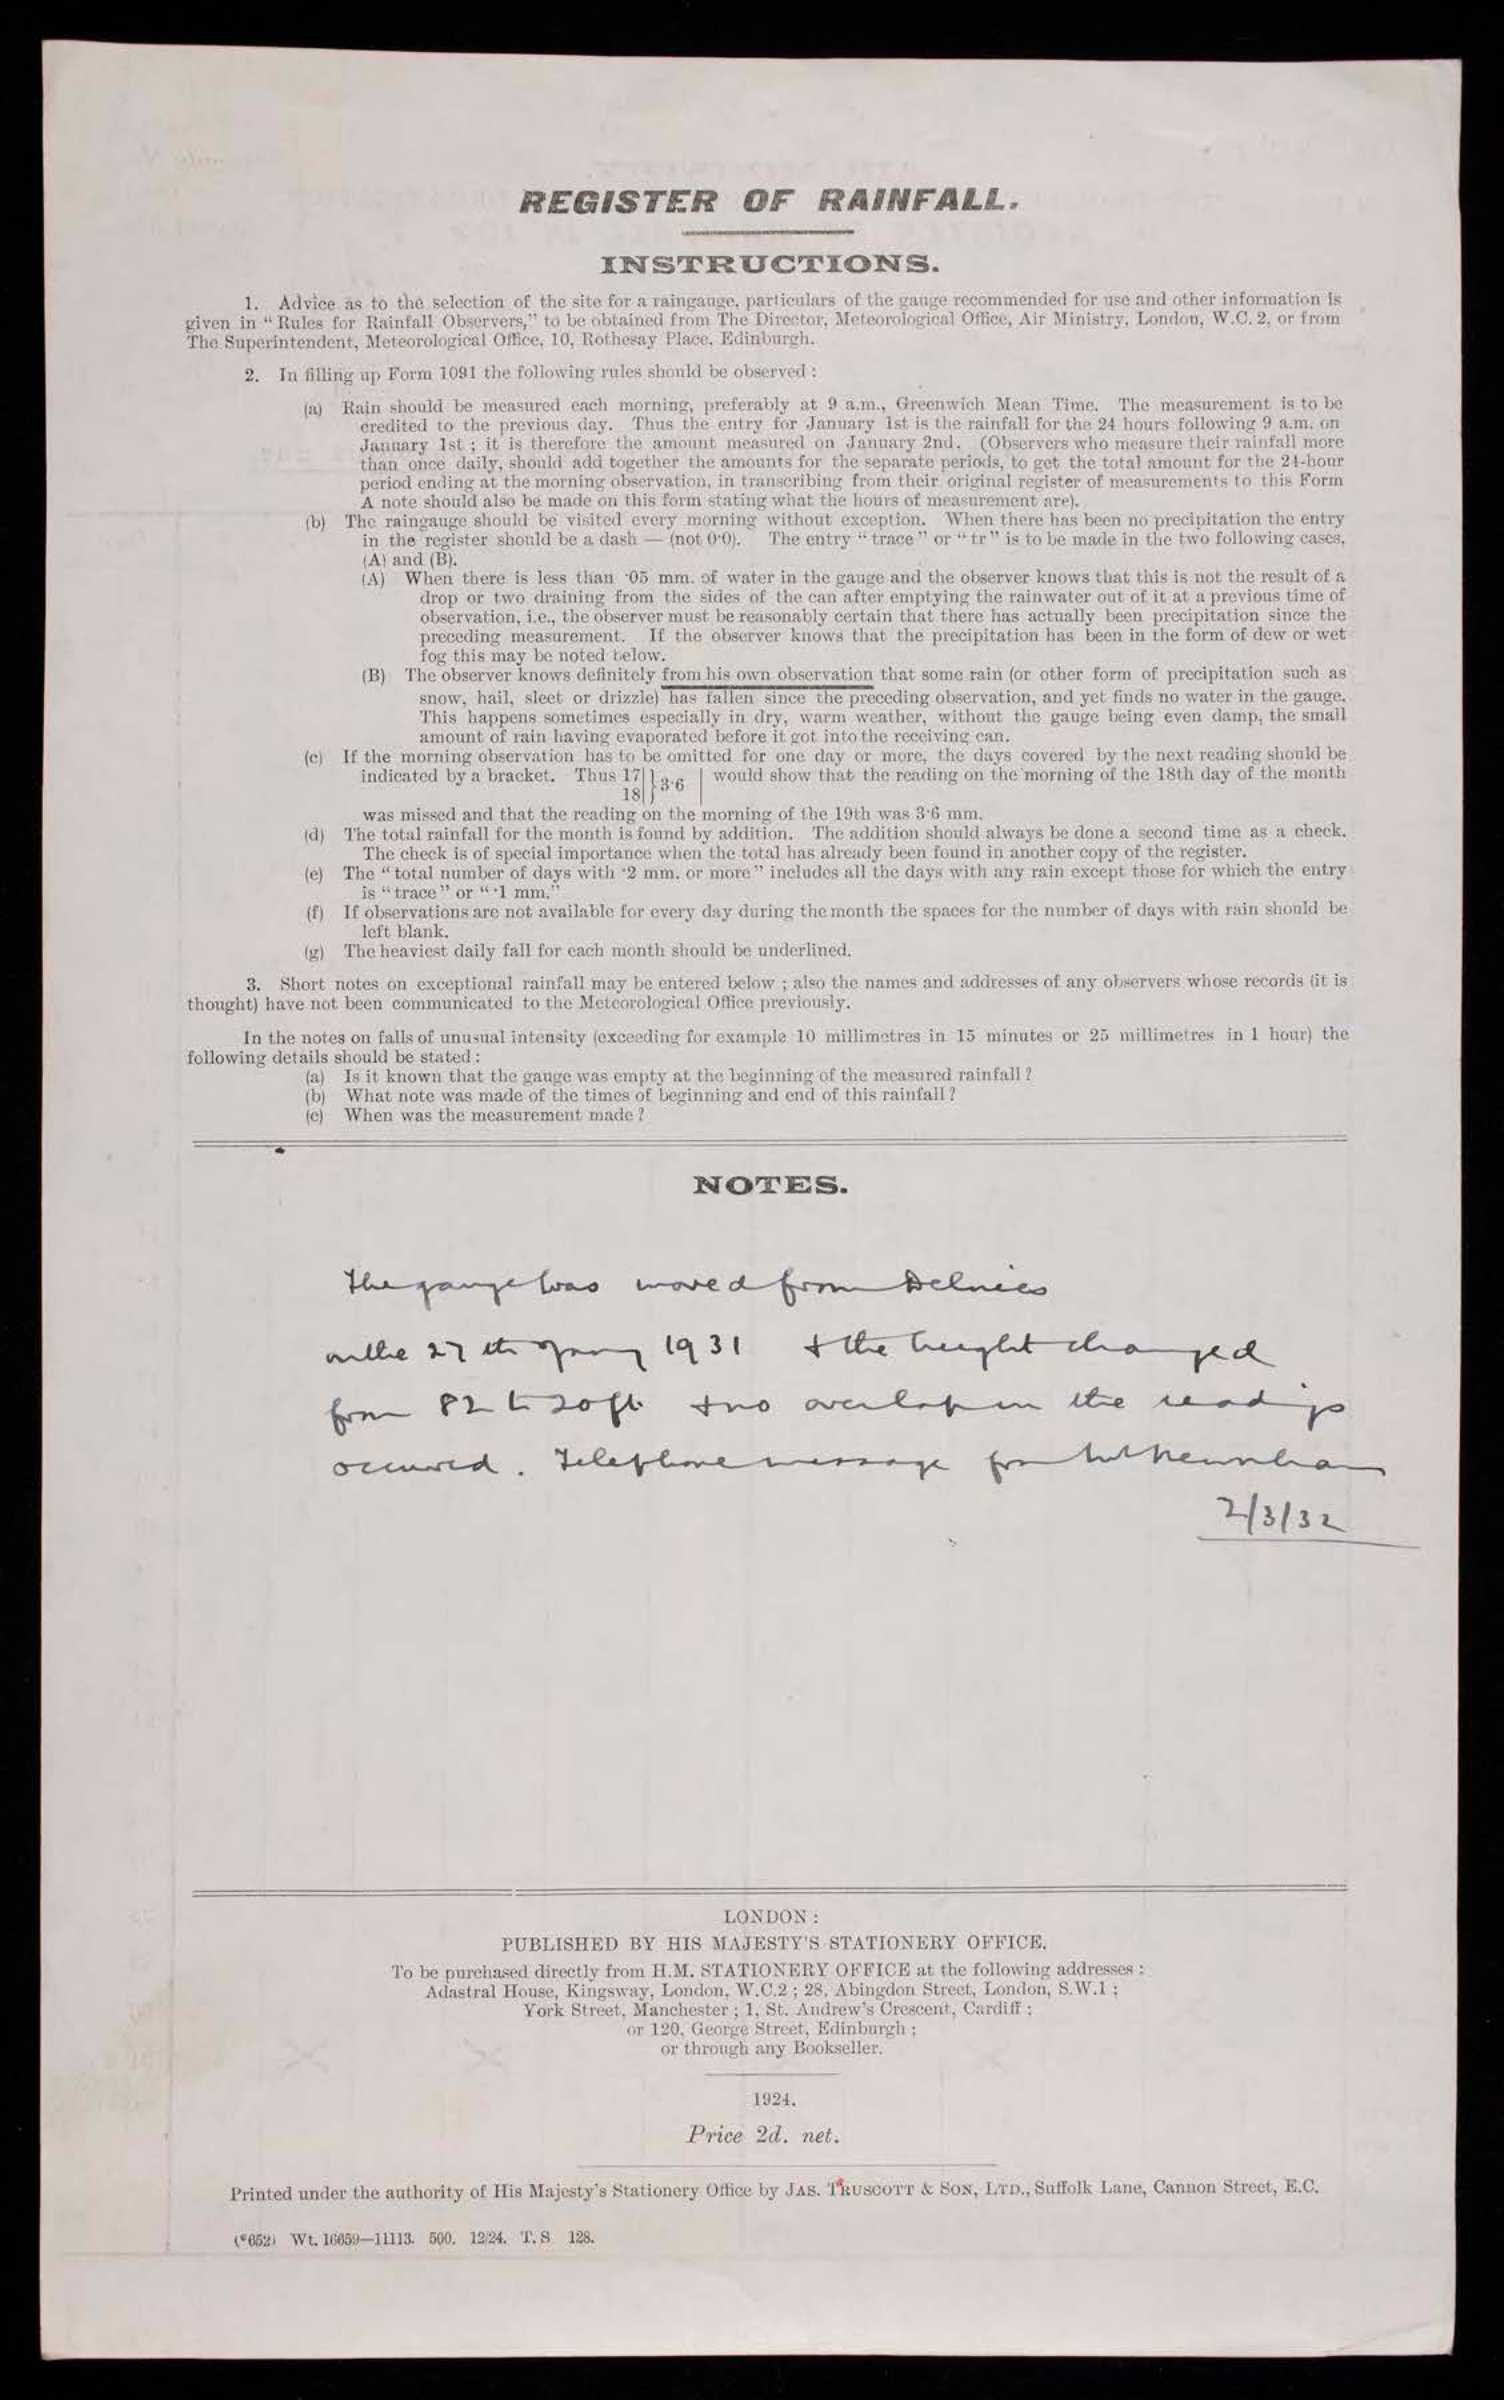 REGISTER OF RAINFALL.
INSTRUCTIONS.
1. Advice as to the selection of the site for a raingauge, particulars of the gauge recommended for use and other information is
given in “Rules for Rainfall Observers,” to be obtained from The Director, Meteorological Office, Air Ministry, London, W.C. 2, or from
The Superintendent, Meteorological Office, 10, Rothesay Place, Edinburgh.
2. In filling up Form 1091 the following rules should be observed :
(a) Rain should be measured each morning, preferably at 9 a.m., Greenwich Mean Time. The measurement is to be
credited to the previous day. Thus the entry for January 1st is the rainfall for the 24 hours following 9 a.m. on
January 1st ; it is therefore the amount measured on January 2nd. (Observers who measure their rainfall more
than once daily, should add together the amounts for the separate periods, to get the total amount for the 24-hour
period ending at the morning observation, in transcribing from their original register of measurements to this Form
A note should also be made on this form stating what the hours of measurement are).
(b) The raingauge should be visited every morning without exception. When there has been no precipitation the entry
in the register should be a dash — (not 0·0). The entry “trace” or “tr” is to be made in the two following cases,
(A) and (B).
(A) When there is less than ·05 mm. of water in the gauge and the observer knows that this is not the result of a
drop or two draining from the sides of the can after emptying the rainwater out of it at a previous time of
observation, i.e., the observer must be reasonably certain that there has actually been precipitation since the
preceding measurement. If the observer knows that the precipitation has been in the form of dew or wet
fog this may be noted below.
(B) The observer knows definitely from his own observation that some rain (or other form of precipitation such as
snow, hail, sleet or drizzle) has fallen since the preceding observation, and yet finds no water in the gauge.
This happens sometimes especially in dry, warm weather, without the gauge being even damp, the small
amount of rain having evaporated before it got into the receiving can.
(c) If the morning observation has to be omitted for one day or more, the days covered by the next reading should be
indicated by a bracket. Thus 17|} 3·6 | would show that the reading on the morning of the 18th day of the month
18|}
was missed and that the reading on the morning of the 19th was 3·6 mm.
(d) The total rainfall for the month is found by addition. The addition should always be done a second time as a check.
The check is of special importance when the total has already been found in another copy of the register.
(e) The “total number of days with ·2 mm. or more” includes all the days with any rain except those for which the entry
is “trace” or “·1 mm.”
(f) If observations are not available for every day during the month the spaces for the number of days with rain should be
left blank.
(g) The heaviest daily fall for each month should be underlined.
3. Short notes on exceptional rainfall may be entered below ; also the names and addresses of any observers whose records (it is
thought) have not been communicated to the Meteorological Office previously.
In the notes on falls of unusual intensity (exceeding for example 10 millimetres in 15 minutes or 25 millimetres in 1 hour) the
following details should be stated :
(a) Is it known that the gauge was empty at the beginning of the measured rainfall ?
(b) What note was made of the times of beginning and end of this rainfall ?
(c) When was the measurement made ?
NOTES.
The gauge was moved from Delnies
on the 27th of 1931 & the height changed
from 82 to 20ft & no overlap in the readings
occurred. Telephone message from
2/3/32
LONDON :
PUBLISHED BY HIS MAJESTY'S STATIONERY OFFICE.
To be purchased directly from H.M. STATIONERY OFFICE at the following addresses :
Adastral House, Kingsway, London, W.C.2 ; 28, Abingdon Street, London, S.W.1 ;
York Street, Manchester ; 1, St. Andrew's Crescent, Cardiff ;
or 120, George Street, Edinburgh ;
or through any Bookseller.
1924.
Price 2d. net.
Printed under the authority of His Majesty's Stationery Office by JAS. TRUSCOTT & SON, LTD., Suffolk Lane, Cannon Street, E.C.
(*652) Wt. 16659—11113. 500. 12/24. T. S. 128.